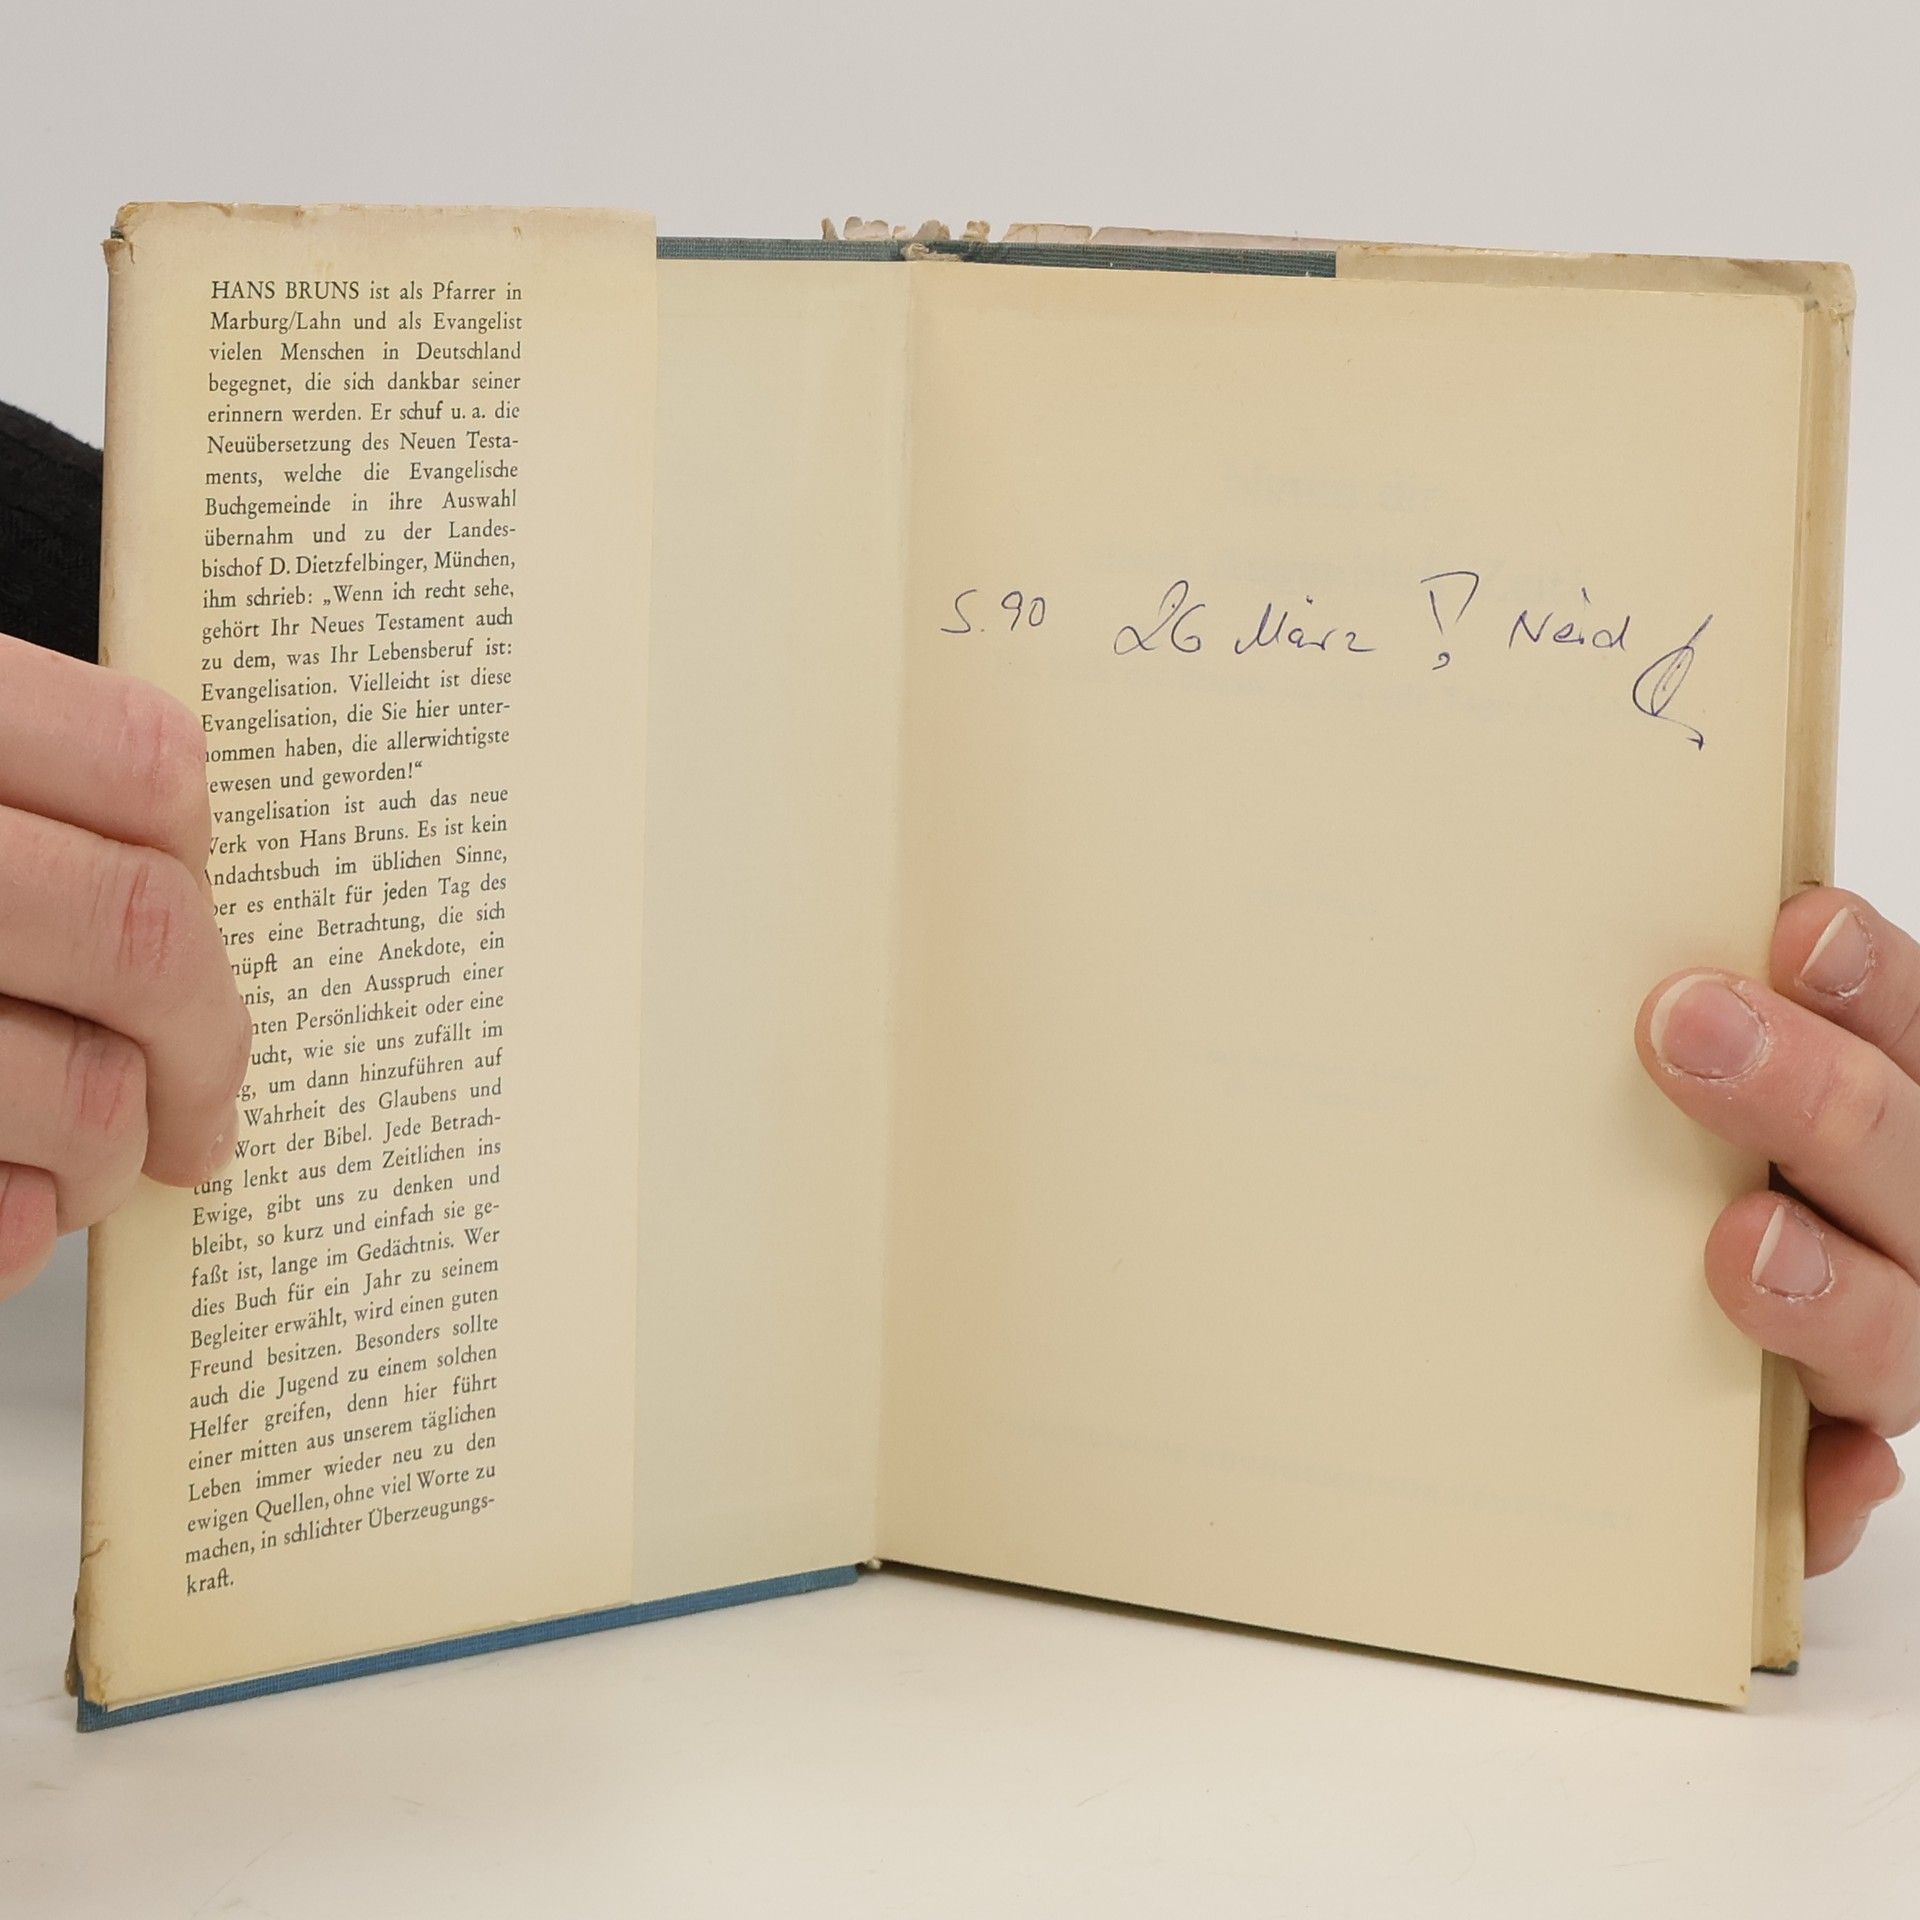 HANS BRUNS ist als Pfarrer in
Marburg/Lahn und als Evangelist
vielen Menschen in Deutschland
begegnet, die sich dankbar seiner
erinnern werden. Er schuf u. a. die
Neuübersetzung des Neuen Testa-
ments, welche die Evangelische
Buchgemeinde in ihre Auswahl
übernahm und zu der Landes-
bischof D. Dietzfelbinger, München,
ihm schrieb: „Wenn ich recht sehe,
gehört Ihr Neues Testament auch
zu dem, was Ihr Lebensberuf ist:
Evangelisation. Vielleicht ist diese
Evangelisation, die Sie hier unter-
nommen haben, die allerwichtigste
gewesen und geworden!“
Evangelisation ist auch das neue
Werk von Hans Bruns. Es ist kein
Andachtsbuch im üblichen Sinne,
es enthält für jeden Tag des
eine Betrachtung, die sich
an eine Anekdote, ein
an den Ausspruch einer
Persönlichkeit oder eine
wie sie uns zufällt im
um dann hinzuführen auf
Wahrheit des Glaubens und
Wort der Bibel. Jede Betrach-
tung lenkt aus dem Zeitlichen ins
Ewige, gibt uns zu denken und
bleibt, so kurz und einfach sie ge-
faßt ist, lange im Gedächtnis. Wer
dies Buch für ein Jahr zu seinem
Begleiter erwählt, wird einen guten
Freund besitzen. Besonders sollte
auch die Jugend zu einem solchen
Helfer greifen, denn hier führt
einer mitten aus unserem täglichen
Leben immer wieder neu zu den
ewigen Quellen, ohne viel Worte zu
machen, in schlichter Überzeugungs-
kraft.
S. 90 26 März ! Neid